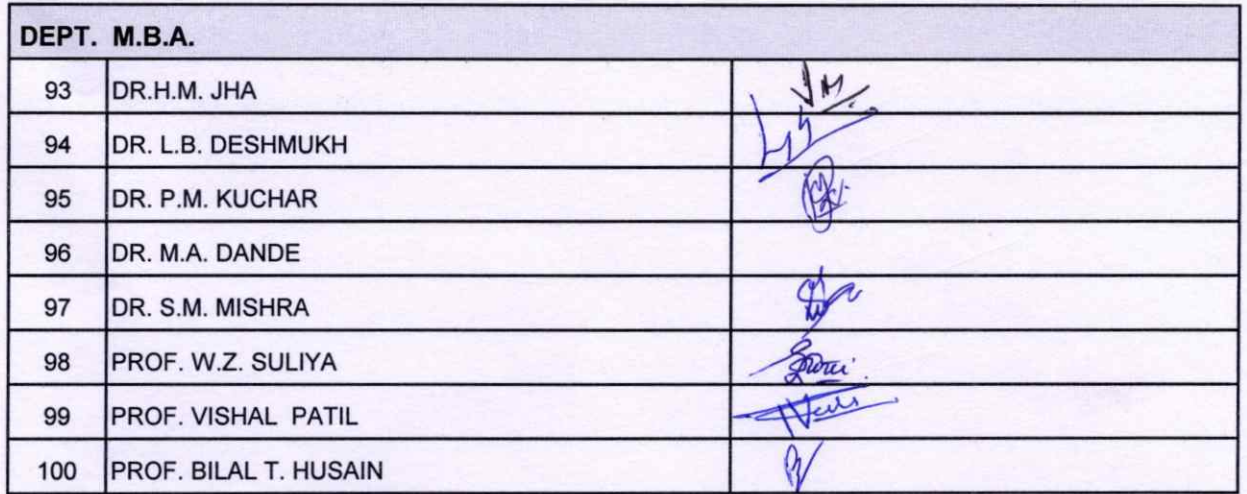 DEPT. M.B.A.
93 DR.H.M. JHA
94 DR. L.B. DESHMUKH
95 DR. P.M. KUCHAR
96 DR. M.A. DANDE
97 DR. S.M. MISHRA
98 PROF. W.Z. SULIYA
99 PROF. VISHAL PATIL
100 PROF. BILAL T. HUSAIN